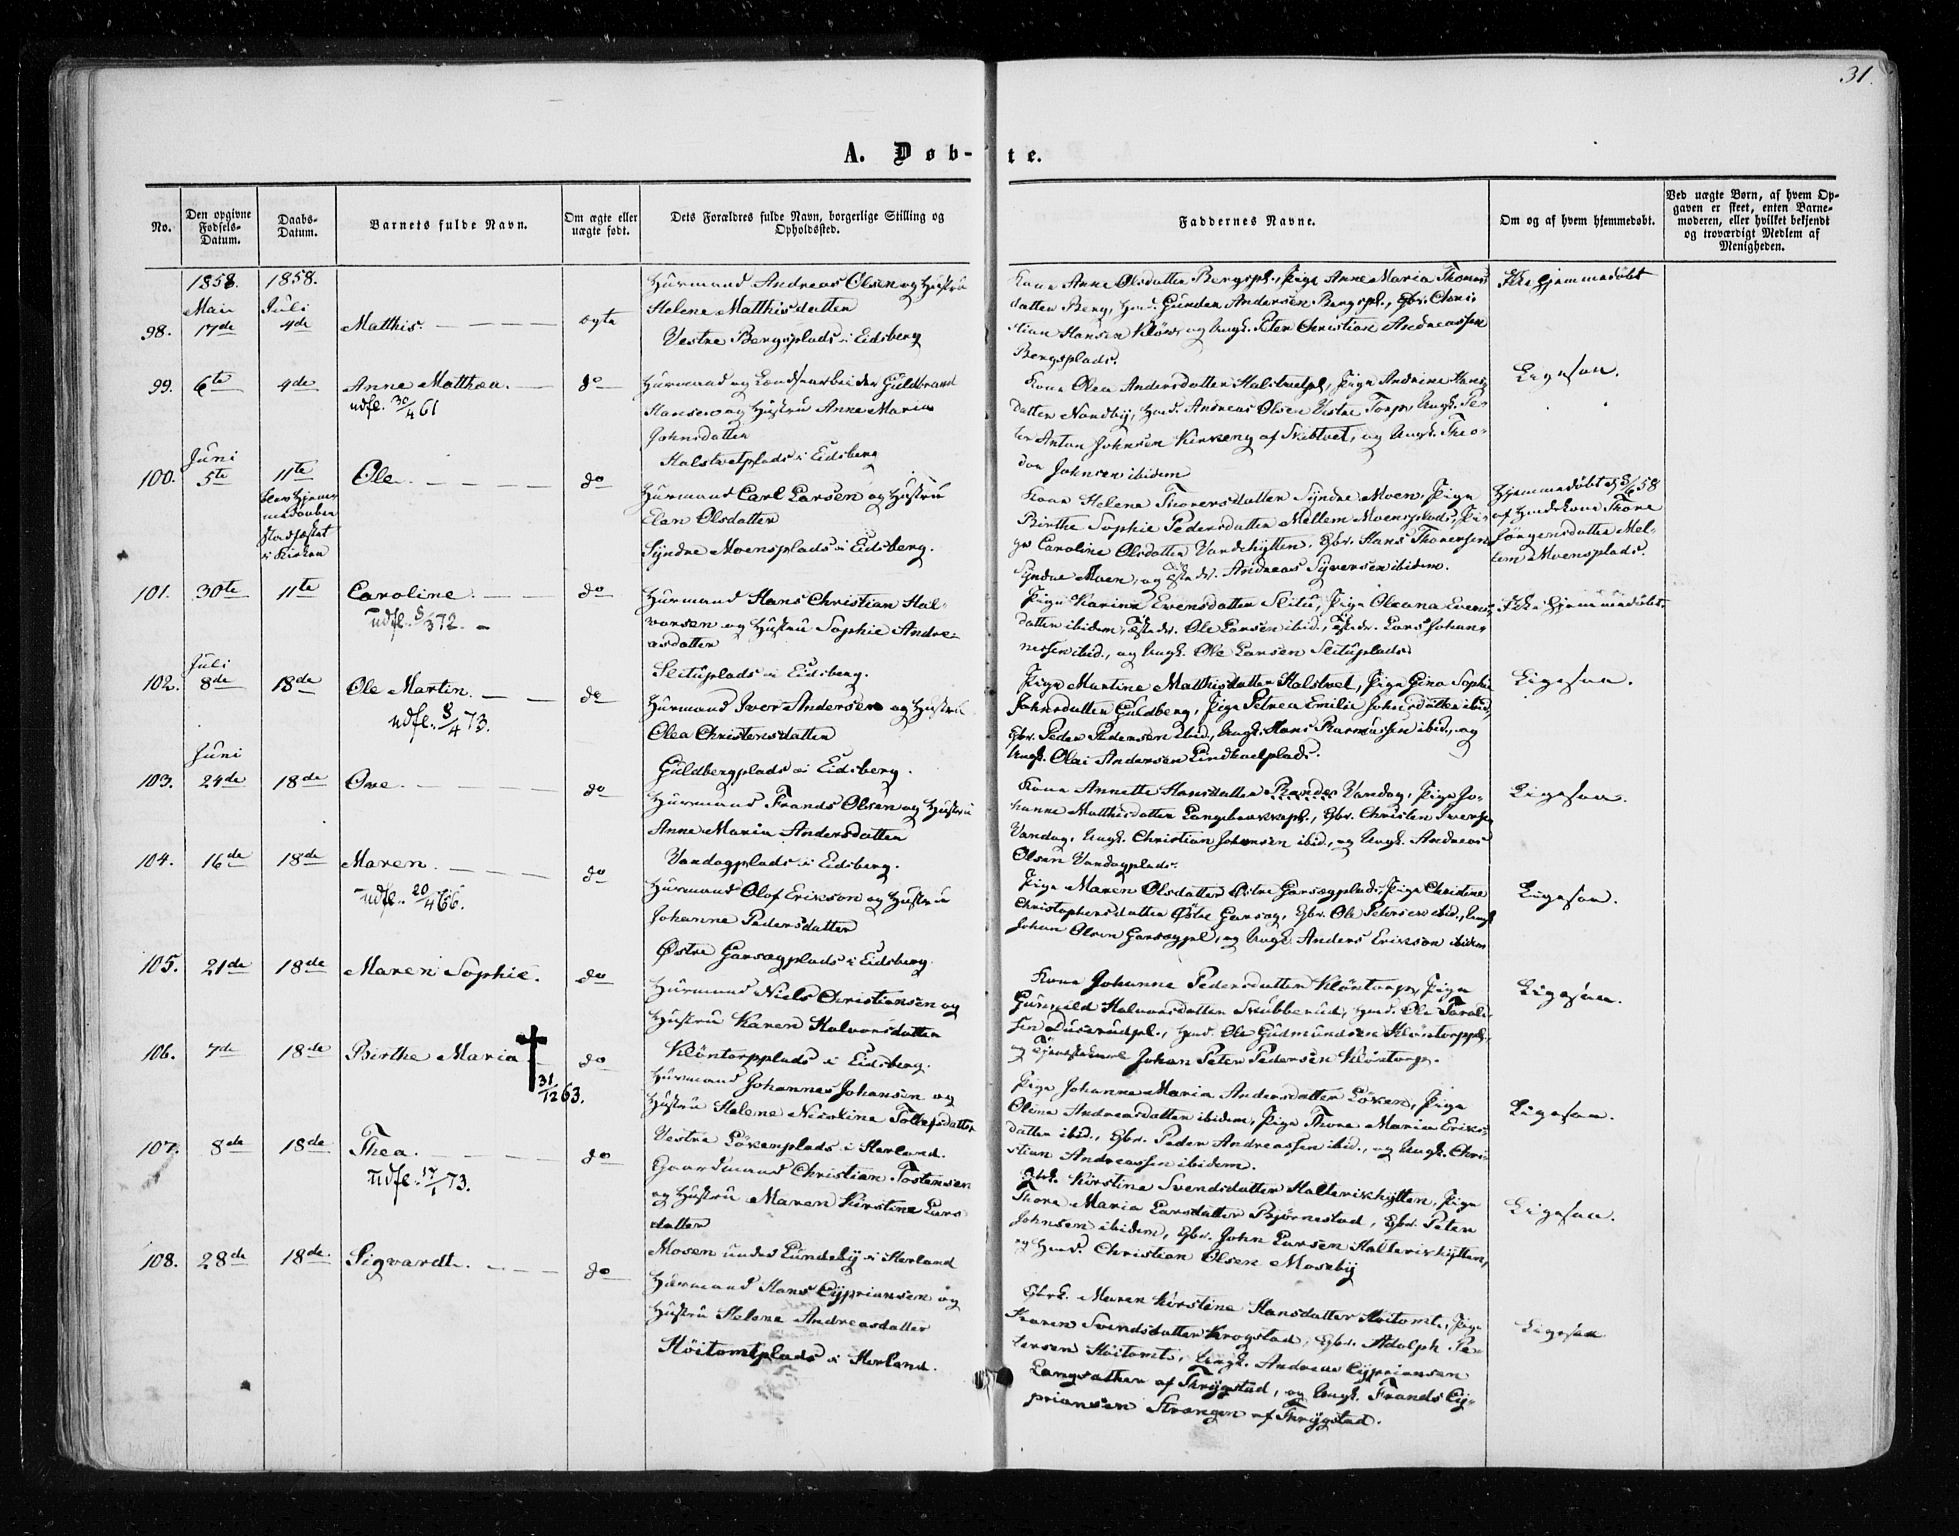 31.
A. Døb-te.
No.
Den opgivne Fødsels-Datum.
Daabs-Datum.
Barnets fulde Navn.
Om ægte eller uægte født.
Dets Forældres fulde Navn, borgerlige Stilling og Opholdssted.
Faddernes Navne.
Om og af hvem hjemmedøbt.
Ved uægte Børn, af hvem Opgaven er skeet, enten Barnemoderen, eller hvilket bekjendt og troværdigt Medlem af Menigheden.
1858. 1858.
Mai Juli
98. 17de 4de Matthis. ægte
Huusmand Andreas Olsen og Hustru
Helene Matthisdatter
Vestre Bergsplads i Eidsberg
Kone Anne Olsdatter Bergspl., Pige Anne Maria Thomas-
datter Berg, Hmd. Gunder Andersen Bergspl., Gbr. Chri-
stian Hansen Kløve, og Ungk. Peter Christian Andreassen
Bergsplads.
Ikke hjemmedøbt
99. 6te 4de Anne Matthea. do
udfl. 30/4 61
Huusmand og Landhandler Guldbrand
Hansen og Hustru Anne Maria
Johnsdatter
Halstvetplads i Eidsberg
Kone Olea Andersdatter Halstvetpl., Pige Andrine Hans-
datter Nordby, Hmd. Andreas Olsen Vestre Torp, Ungk. Pe-
ter Anton Johnsen Kirkeng af Skibtvet, og Ungk. Theo-
dor Johnsen ibidem
Ligesaa.
Juni
100. 5te 11te Ole do
blev Hjem-
medaaben
stadfæstet
i Kirken
Huusmand Carl Larsen og Hustru
Elen Olsdatter
Syndre Moensplads i Eidsberg.
Kone Helene Thorersdatter Syndre Moen, Pige
Birthe Sophie Pedersdatter Mellem Moensplads, Pi-
ge Caroline Olsdatter Vandehytten, Gbr. Hans Thorersen
Syndre Moen, og Andreas Syversen ibidem.
Hjemmedøbt 58
af Huuskone Thore
Jørgensdatter Mel-
lem Moensplads.
101. 30te 11te Caroline. do
udfl. 5/3 72.
Huusmand Hans Christian Hal-
vorsen og Hustru Sophie Andre-
asdatter
Slituplads i Eidsberg.
Pige Karine Evensdatter Slitu, Pige Oleana Evens-
datter ibidem, Ole Larsen ibid., Lars Johan-
nessen ibid., og Ungk. Ole Larsen Slituplads
Ikke hjemmedøbt.
Juli
102. 8de 18de Ole Martin. do
udfl. 8/4 73.
Huusmand Iver Andersen og Hustru
Olea Christensdatter
Guldbergplads i Eidsberg.
Pige Martine Matthisdatter Halstvet, Pige Gina Sophie
Johnsdatter Guldberg, Pige Petrea Emilie Johnsdatter ibid.,
Gbr. Peder Pedersen ibid., Ungk. Hans Rasmussen ibid., og
Ungk. Olai Andersen Lindhoelplads.
Ligesaa.
Juni
103. 24de 18de Ove. do
Huusmand Frands Olsen og Hustru
Anne Maria Andersdatter
Vandugplads i Eidsberg.
Kone Annette Hansdatter Vandug, Pige Jo-
hanne Matthisdatter Langebrækkepl., Gbr. Christen Iversen
Vandug, Ungk. Christian Johansen ibid., og Ungk. Andreas
Olsen Vandugplads.
Ligesaa.
104. 16de 18de Maren. do
udfl. 20/4 66.
Huusmand Olof Erikson og Hustru
Johanne Pedersdatter
Østre Garsegplads i Eidsberg.
Pige Maren Olsdatter Østre Garsegplads, Pige Christine
Christophersdatter Østre Garseg, Gbr. Ole Petersen ibid., Ungk.
Johan Olsen Garsegpl., og Ungk. Anders Erikson ibidem
Ligesaa.
105. 21de 18de Maren Sophie. do
Huusmand Niels Christiansen og
Hustru Karen Halvorsdatter
Kløntorpplads i Eidsberg.
Kone Johanne Pedersdatter Kløntorp, Pige
Gunhild Halvorsdatter Skubberud, Hmd. Ole Torali-
sen Buserudpl., Hmd. Ole Gudmundsen Kløntorppl.,
og Johan Peter Pedersen Kløntorp.
Ligesaa.
106. 7de 18de Birthe Maria do
31/12 63.
Huusmand Johannes Johansen og
Hustru Helene Nicoline Tollefsdatter
Vestre Løkenplads i Herland.
Pige Johanne Maria Andersdatter Løken, Pige
Oline Andreasdatter ibidem, Pige Thore Maria Eriks-
datter ibid., Gbr. Peder Andreassen ibid., og Ungk. Chri-
stian Andreassen ibidem.
Ligesaa.
107. 8de 18de Thea. do
udfl. 17/1 73.
Gaardmand Christian Tostensen
og Hustru Maren Kirstine Lars-
datter
Mosen under Lundeby i Herland
Gbrk. Kirstine Svendsdatter Halterikhytten, Pige
Thore Maria Larsdatter Bjørnestad, Gbr. Peter
Johnsen ibidem, Gbr. John Larsen Halterikhytten,
og Hmd. Christian Olsen Moseby
Ligesaa.
108. 28de 18de Sigvardt. do
Huusmand Hans Cyprianssen og
Hustru Helene Andreasdatter
Høitomtplads i Herland.
Gbrk. Maren Kirstine Hansdatter Høitomt, Pige
Karen Svendsdatter Krogstad, Gbr. Adolph Pe-
tersen Høitomt, Ungk. Andreas Cypriansen
Langsæther af Thrygstad, og Ungk. Frands Cy-
priansen Strangen af Thrygstad.
Ligesaa